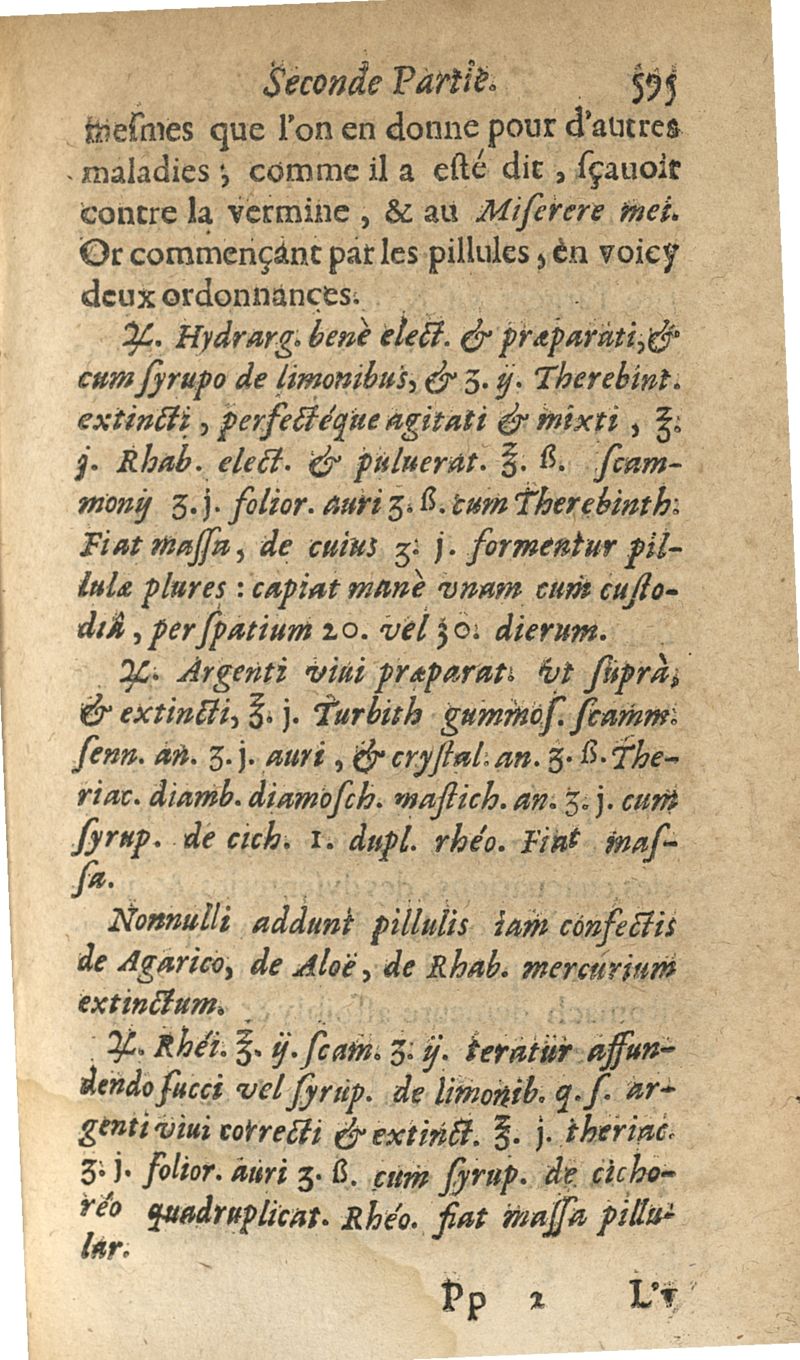 Seconde Partie. 595
meſmes que l'on en donne pour d'autres
maladies ; comme il a eſté dit , ſçauoir
contre la vermine , & au Miſerere mei.
Or commençant par les pillules , en voicy
deux ordonnances.
♃. Hydrarg. benè elect. & præparati, &
cum ſyrupo de limonibus, & ʒ. ij. Therebint.
extincti , perfectéque agitati & mixti , ℥.
j. Rhab. elect. & puluerat. ℥. ß. ſcam-
monij ʒ. j. folior. auri ʒ. ß. cum Therebinth.
Fiat maſſa, de cuius ʒ. j. formentur pil-
lulæ plures : capiat manè vnam cum cuſto-
diâ , per ſpatium 20. vel 30. dierum.
♃. Argenti viui præparat. vt ſuprà,
& extincti, ℥. j. Turbith gummoſ. ſcamm.
ſenn. an. ʒ. j. auri , & cryſtal. an. ʒ. ß. The-
riac. diamb. diamoſch. maſtich. an. ʒ. j. cum
ſyrup. de cich. 1. dupl. rhéo. Fiat maſ-
ſa.
Nonnulli addunt pillulis iam confectis
de Agarico, de Aloë, de Rhab. mercurium
extinctum.
♃. Rhéi. ℥. ij. ſcam. ʒ. ij. teratur affun-
dendo ſucci vel ſyrup. de limonib. q. ſ. ar-
genti viui correcti & extinct. ℥. j. theriac.
ʒ. j. folior. auri ʒ. ß. cum ſyrup. de cicho-
réo quadruplicat. Rhéo. fiat maſſa pillu-
lar.
Pp 2 L'v